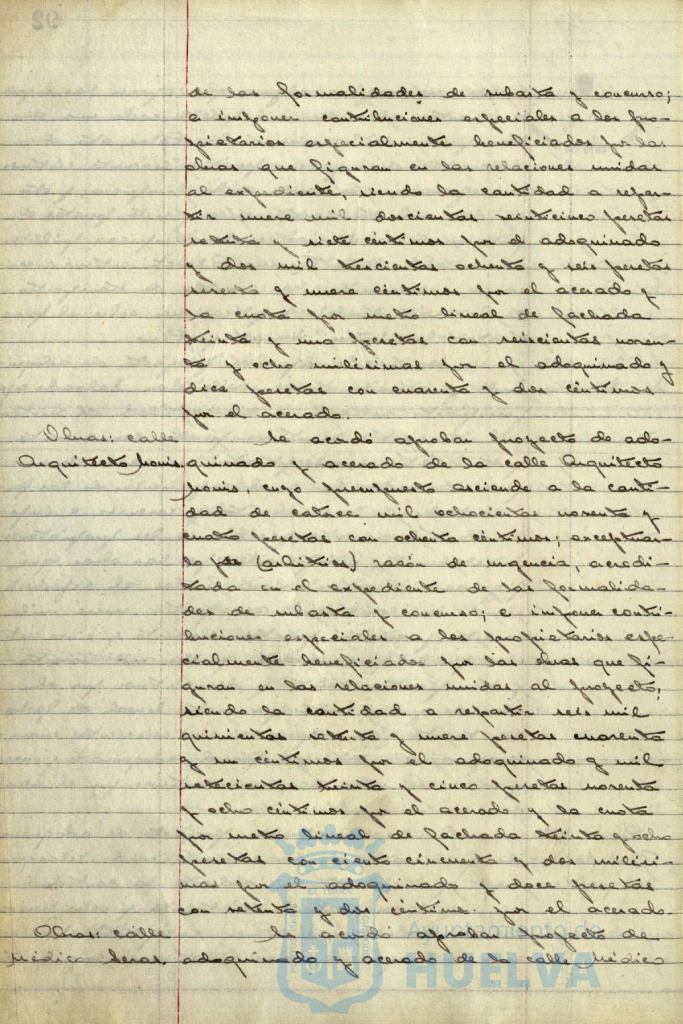 de las formalidades de subasta y concurso;
e imponer contribuciones especiales a los pro-
pietarios especialmente beneficiados por las
obras que figuran en las relaciones unidas
al expediente, siendo la cantidad a repar-
tir nueve mil doscientas veinticinco pesetas
setenta y siete céntimos por el adoquinado
y dos mil trescientas ochenta y seis pesetas
sesenta y nueve céntimos por el acerado y
la cuota por metro lineal de fachada
treinta y una pesetas con seiscientas noven-
ta y ocho milésimas por el adoquinado y
doce pesetas con cuarenta y dos céntimos
por el acerado.
Obras: calle
Arquitecto Monís.
Se acordó aprobar proyecto de ado-
quinado y acerado de la calle Arquitecto
Monís, cuyo presupuesto asciende a la canti-
dad de catorce mil ochocientas noventa y
cuatro pesetas con ochenta céntimos; exceptuar-
lo por razón de urgencia, acredi-
tada en el expediente de las formalida-
des de subasta y concurso; e imponer contri-
buciones especiales a los propietarios espe-
cialmente beneficiados por las obras que fi-
guran en las relaciones unidas al proyecto;
siendo la cantidad a repartir seis mil
quinientas setenta y nueve pesetas cuarenta
y un céntimos por el adoquinado y mil
setecientas treinta y cinco pesetas noventa
y ocho céntimos por el acerado y la cuota
por metro lineal de fachada treinta y ocho
pesetas con ciento cincuenta y dos milési-
mas por el adoquinado y doce pesetas
con setenta y dos céntimos por el acerado.
Obras: calle
Médico Seras.
Se acordó aprobar proyecto de
adoquinado y acerado de la calle Médico
Ayuntamiento de
HUELVA